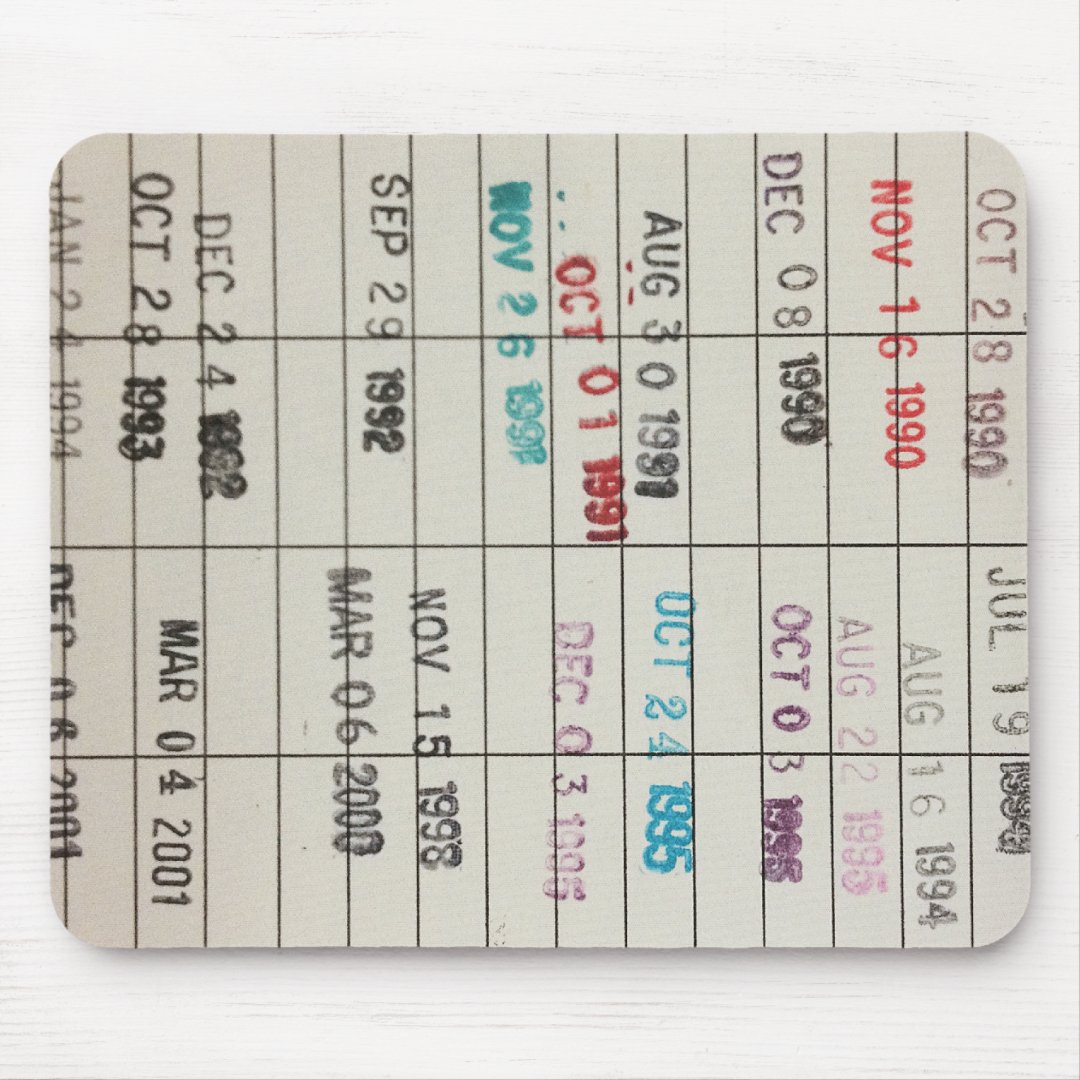 OCT 28 1990
NOV 16 1990
DEC 08 1990
AUG 30 1991
OCT 01 1991
NOV 26 1991
SEP 29 1992
DEC 24 1992
OCT 28 1993
JAN 24 1994
JUL 19 1994
AUG 16 1994
AUG 22 1995
OCT 03 1995
OCT 24 1995
DEC 03 1995
NOV 15 1998
MAR 06 2000
MAR 04 2001
DEC 2001